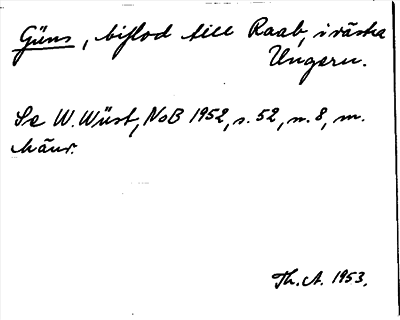 Güns, biflod till Raab, i västra
Ungern.
Se W. Wüst, NoB 1952, s. 52, n. 8, m.
hänv.
Th. A. 1953.